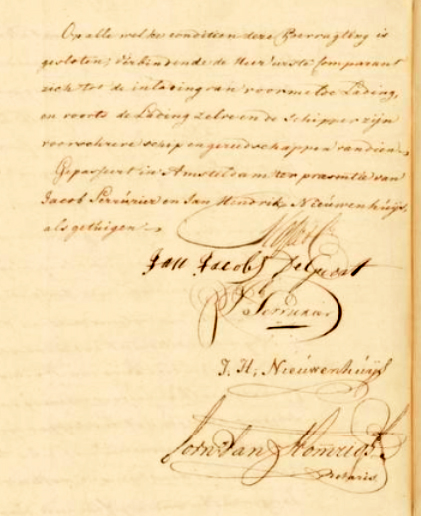 Op alle welke condition deze Bevragting is
gesloten; Verbindende de Heer eerste Comparant
zich tot de inlading van voormelde Lading,
en voorts de Lading zelve en de Schipper zijn
voorschreve schip en gereedschappen van dien
Gepasseert in Amsteldam ter præsentie van
Jacob Serrurier en Jan Hendrik Nieuwenhuijs,
als getuigen
Jan Jacobs
J. Serrurier
J. H. Nieuwenhuijs
Jorn van Homrigh
Notaris